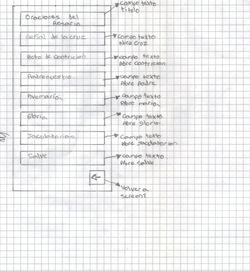 Oraciones del
Rosario
campo texto
titulo
Señal de la cruz
campo texto
Abre cruz
Acto de contrición
campo texto
Abre contricion
Padrenuestro
campo texto
Abre padre
Avemaría
campo texto
Abre maria
Gloria
campo texto
Abre gloria
Jaculatorias
campo texto
Abre Jaculatorias
Salve
campo texto
Abre salve
volver a
screen1